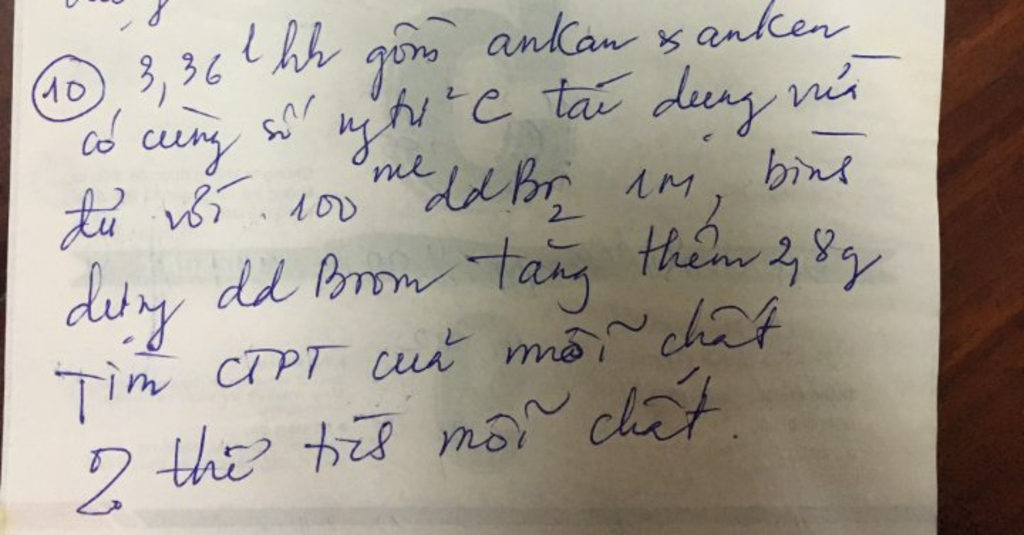 10 3,36 l hh gồm ankan & anken
có cùng số ngtử C tác dụng vừa
đủ với 100 ml dd Br2 1M, bình
đựng dd Brom tăng thêm 2,8g
Tìm CTPT của mỗi chất
thể tích mỗi chất.